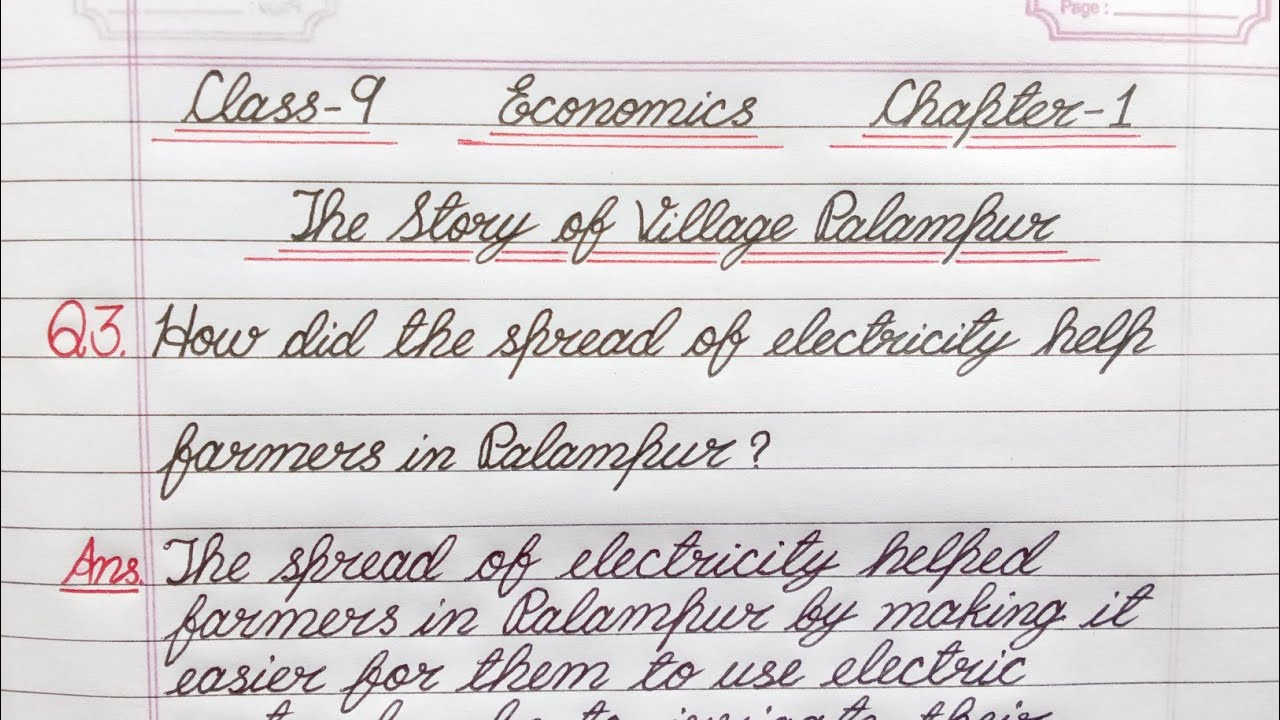 Page :
Class-9 Economics Chapter-1
The Story of Village Palampur
Q3. How did the spread of electricity help
farmers in Palampur?
Ans. The spread of electricity helped
farmers in Palampur by making it
easier for them to use electric
to irrigate their